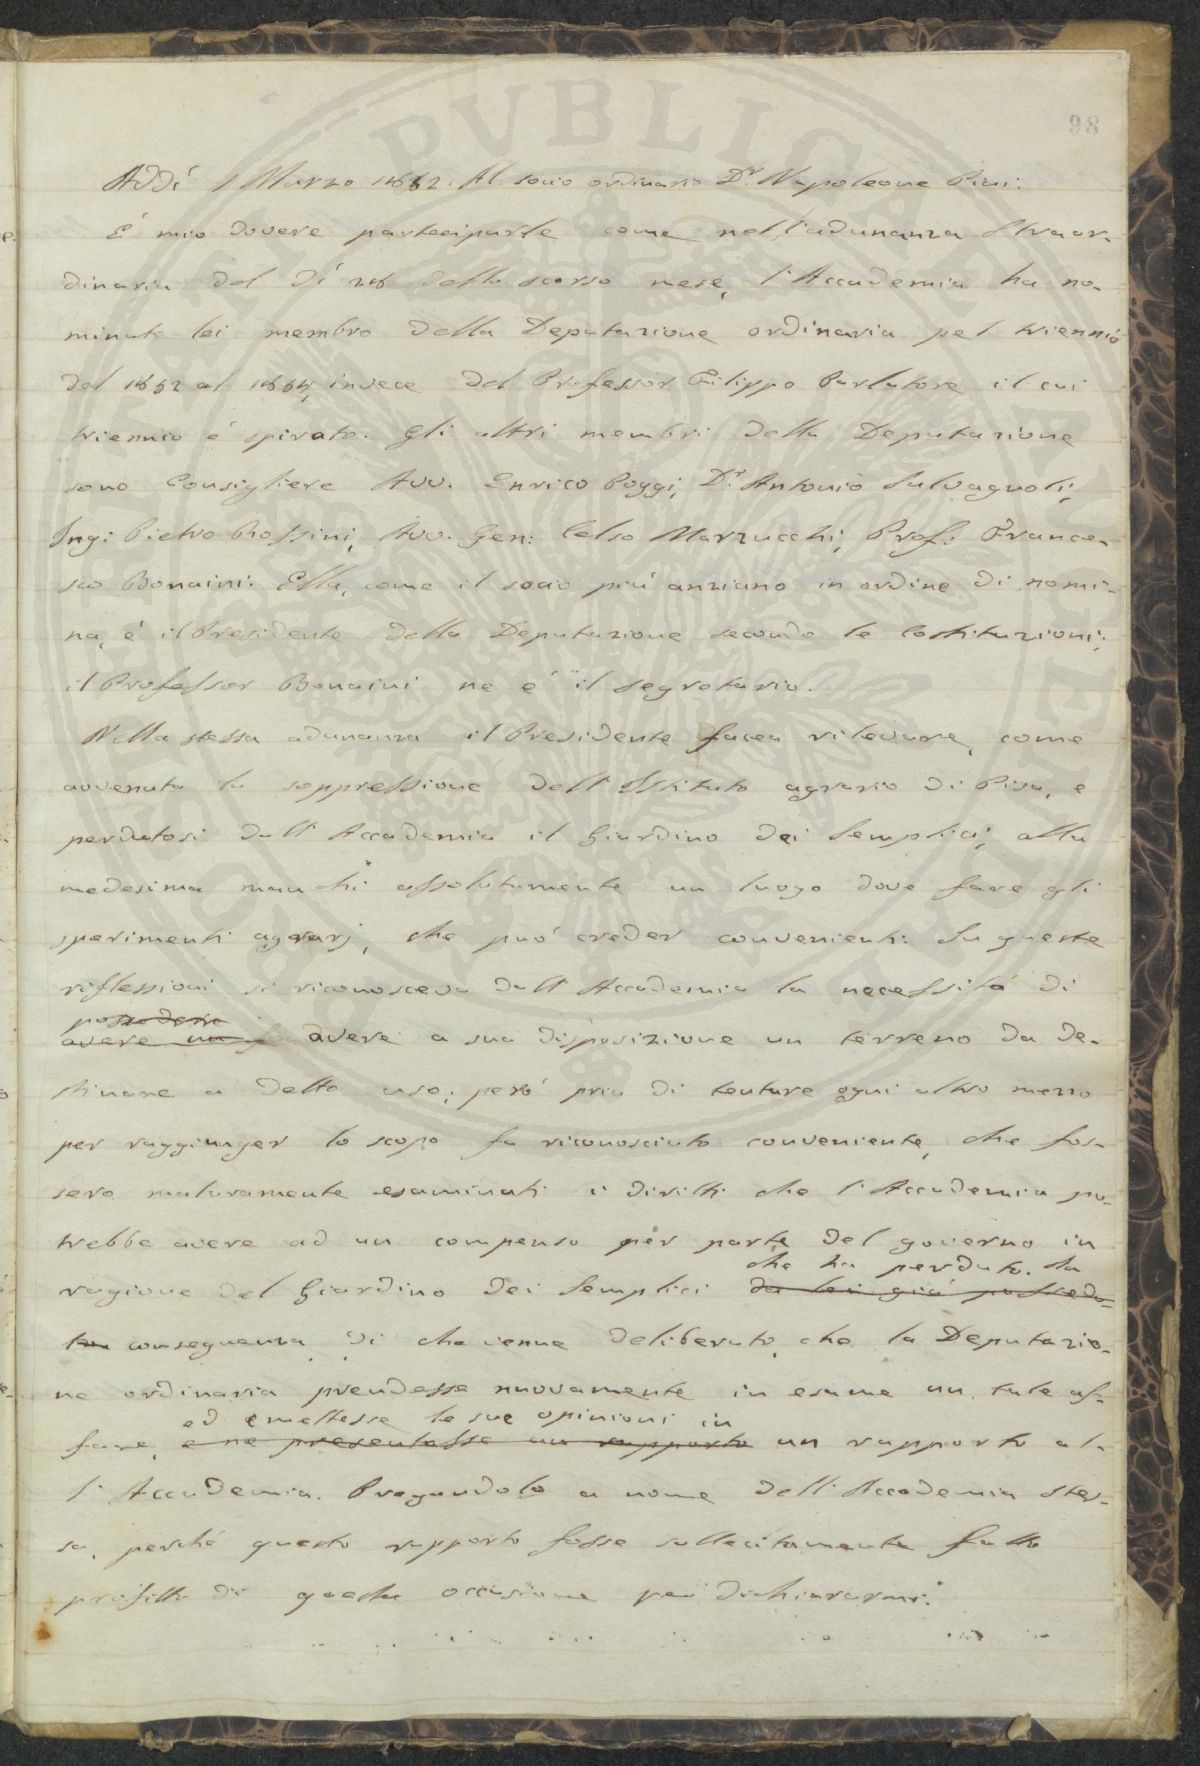 98
Addí 1 Marzo 1852. Al socio ordinario Dr. Napoleone Pini:
É mio dovere partecipar le come nell'adunanza Straor-
dinaria del dí 28 dello scorso mese, l'Accademia ha no-
minato lei membro della Deputazione ordinaria pel triennio
del 1852 al 1854, invece del Professor Filippo Parlatore il cui
triennio é spirato. Gli altri membri della Deputazione
sono Consigliere Avv. Enrico Poggi, Dr. Antonio Salvagnoli,
Ing: Pietro Rossini, Avv. Gen: Celso Marzucchi, Prof: France-
sco Bonaini: Ella, come il socio piú anziano in ordine di nomi-
na, é il Presidente della Deputazione secondo le Costituzioni;
il Professor Bonaini ne é il segretario.
Nella stessa adunanza il Presidente facea rilevare, come
avvenuta la soppressione dell'Istituto agrario di Pisa, e
perdutosi dall'Accademia il Giardino dei Semplici, alla
medesima manchi assolutamente un luogo dove fare gli
sperimenti agrarj, che puó creder convenienti: Su queste
riflessioni si riconosceva dall'Accademia la necessitá di
possedere
avere un avere a sua disposizione un terreno da de-
stinare a detto uso; peró pria di tentare ogni altro mezzo
per raggiunger lo scopo fu riconosciuto conveniente, che fos-
sero maturamente esaminati i diritti che l'Accademia po-
trebbe avere ad un compenso per parte del governo in
che ha perduto. In
ragione del Giardino dei Semplici da lei giá possedu-
to conseguenza di che venne deliberato, che la Deputazio-
ne ordinaria prendesse nuovamente in esame un tale af-
ed emettesse le sue opinioni in
fare, e ne presentasse un rapporto un rapporto al-
l'Accademia. Pregandolo a nome dell'Accademia stes-
sa, perché questo rapporto fosse sollecitamente fatto
profitto di questa occasione per dichiararmi: